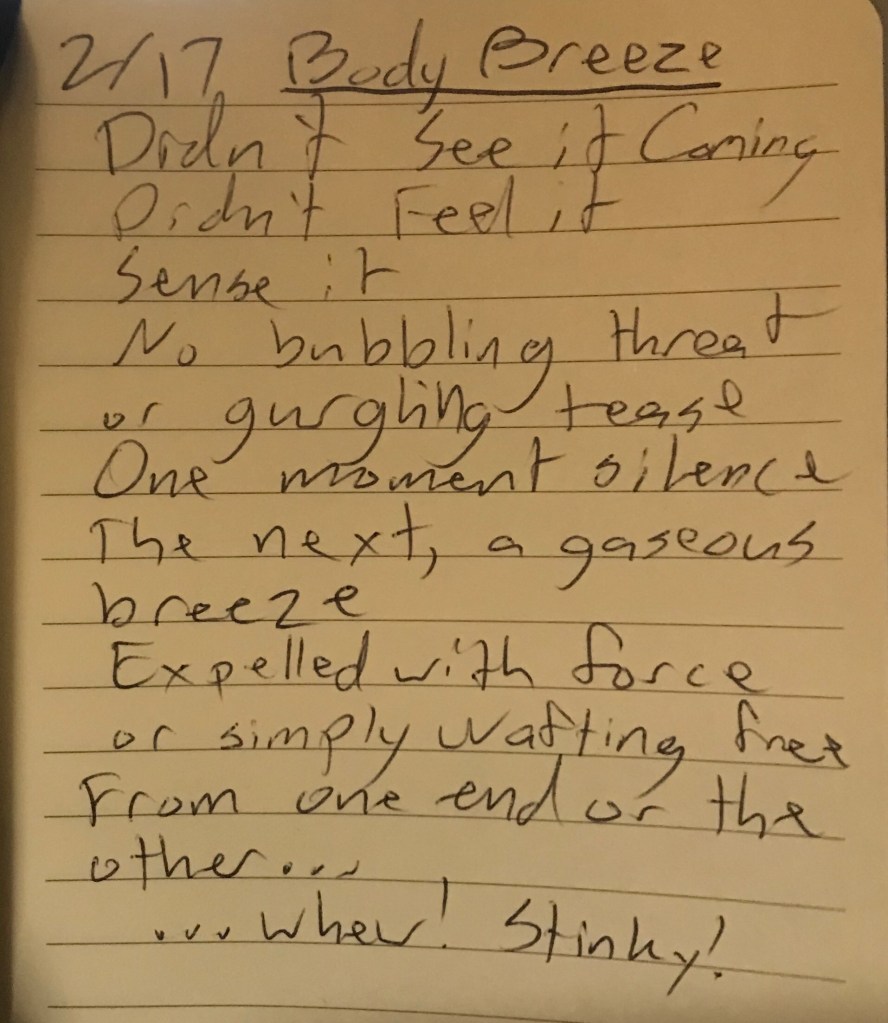 2/17 Body Breeze
Didn't See it Coming
Didn't Feel it
Sense it
No bubbling threat
or gurgling tease
One moment silence
The next, a gaseous
breeze
Expelled with force
or simply wafting free
From one end or the
other...
...whew! Stinky!